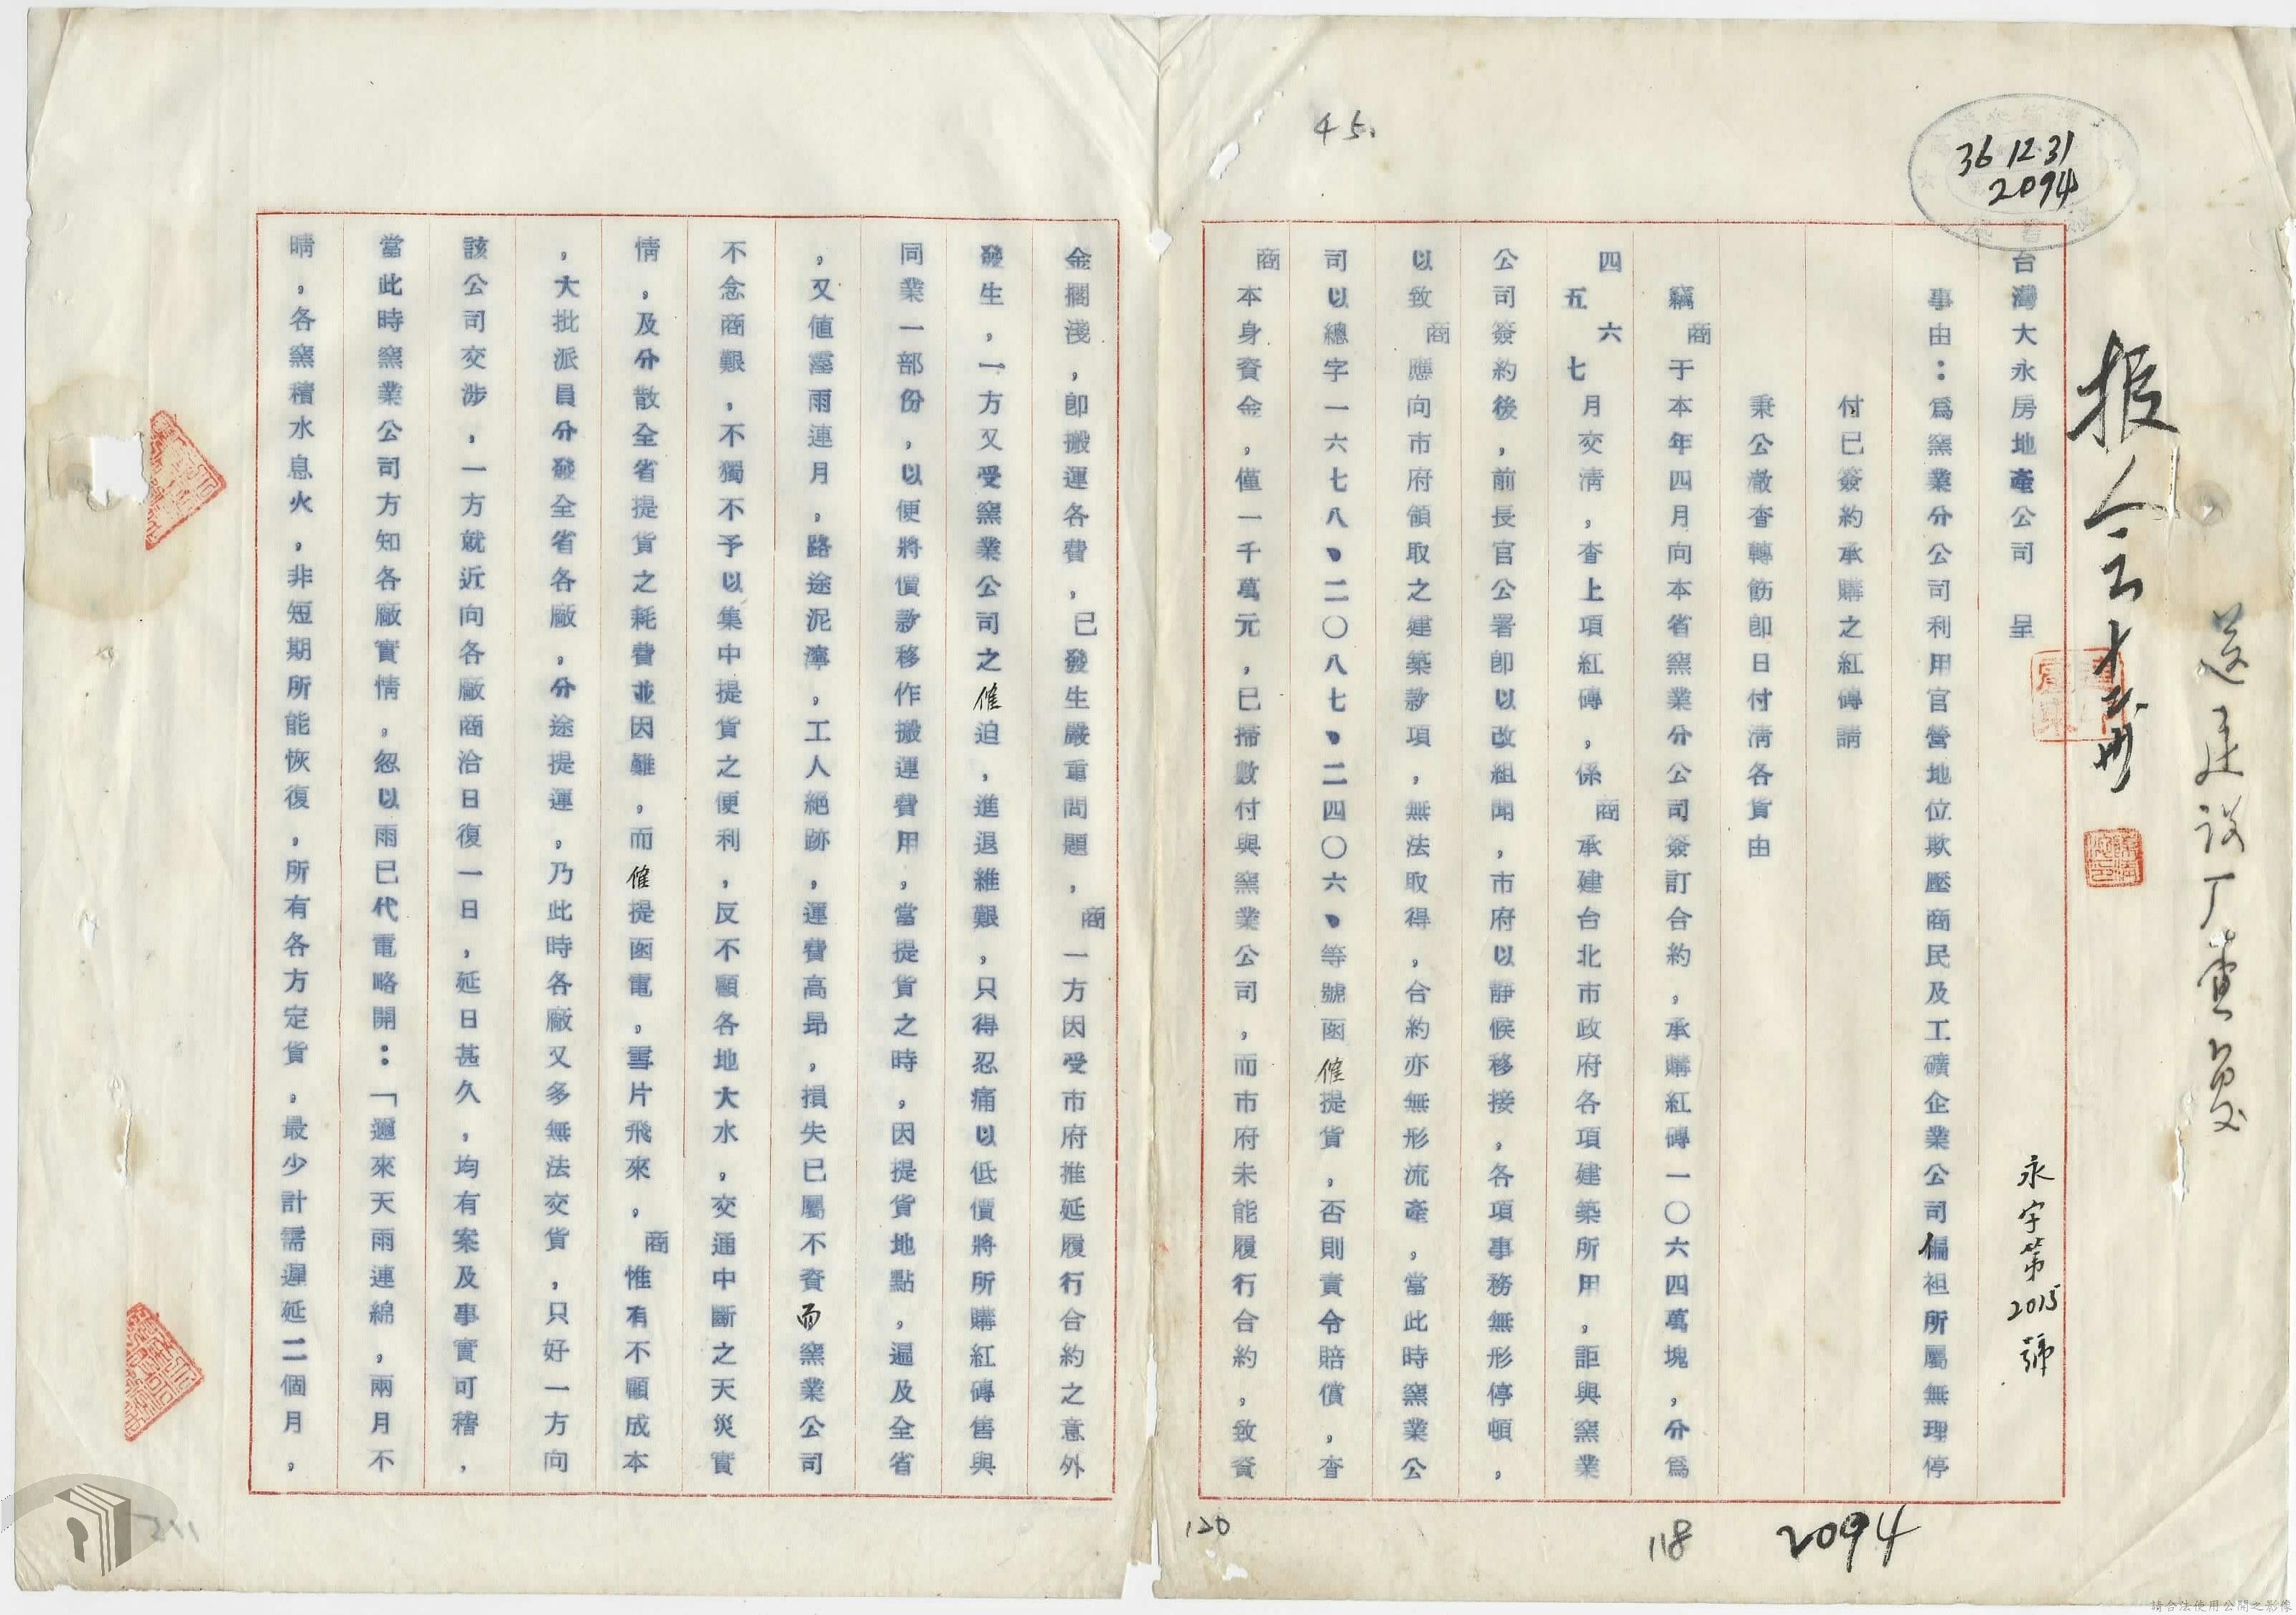 45.
36 12 31
2094
送建設厂查复
台灣大永房地產公司　呈　永字第2015號
事由：為窯業分公司利用官營地位欺壓商民及工礦企業公司偏袒所屬無理停
付已簽約承購之紅磚請
秉公澈查轉飭即日付清各貨由
竊商于本年四月向本省窯業分公司簽訂合約，承購紅磚一〇六四萬塊，分為
四五六七月交清，查上項紅磚，係商承建台北市政府各項建築所用，詎與窯業
公司簽約後，前長官公署即以改組聞，市府以靜候移接，各項事務無形停頓，
以致商應向市府領取之建築款項，無法取得，合約亦無形流產，當此時窯業公
司以總字一六七八、二〇八七、二四〇六、等號函催提貨，否則責令賠償，查
商本身資金，僅一千萬元，已掃數付與窯業公司，而市府未能履行合約，致資
金擱淺，即搬運各費，已發生嚴重問題，商一方因受市府推延履行合約之意外
發生，一方又受窯業公司之催迫，進退維艱，只得忍痛以低價將所購紅磚售與
同業一部份，以便將價款移作搬運費用，當提貨之時，因提貨地點，遍及全省
，又值霪雨連月，路途泥濘，工人絕跡，運費高昂，損失已屬不資而窯業公司
不念商艱，不獨不予以集中提貨之便利，反不顧各地大水，交通中斷之天災實
情，及分散全省提貨之耗費並因難，而催提函電，雪片飛來，商惟有不顧成本
，大批派員分發全省各廠，分途提運，乃此時各廠又多無法交貨，只好一方向
該公司交涉，一方就近向各廠商洽日復一日，延日甚久，均有案及事實可稽，
當此時窯業公司方知各廠實情，忽以雨已代電略開：「邇來天雨連綿，兩月不
晴，各窯積水息火，非短期所能恢復，所有各方定貨，最少計需遲延二個月，
120
118
2094
請合法使用公開之影像